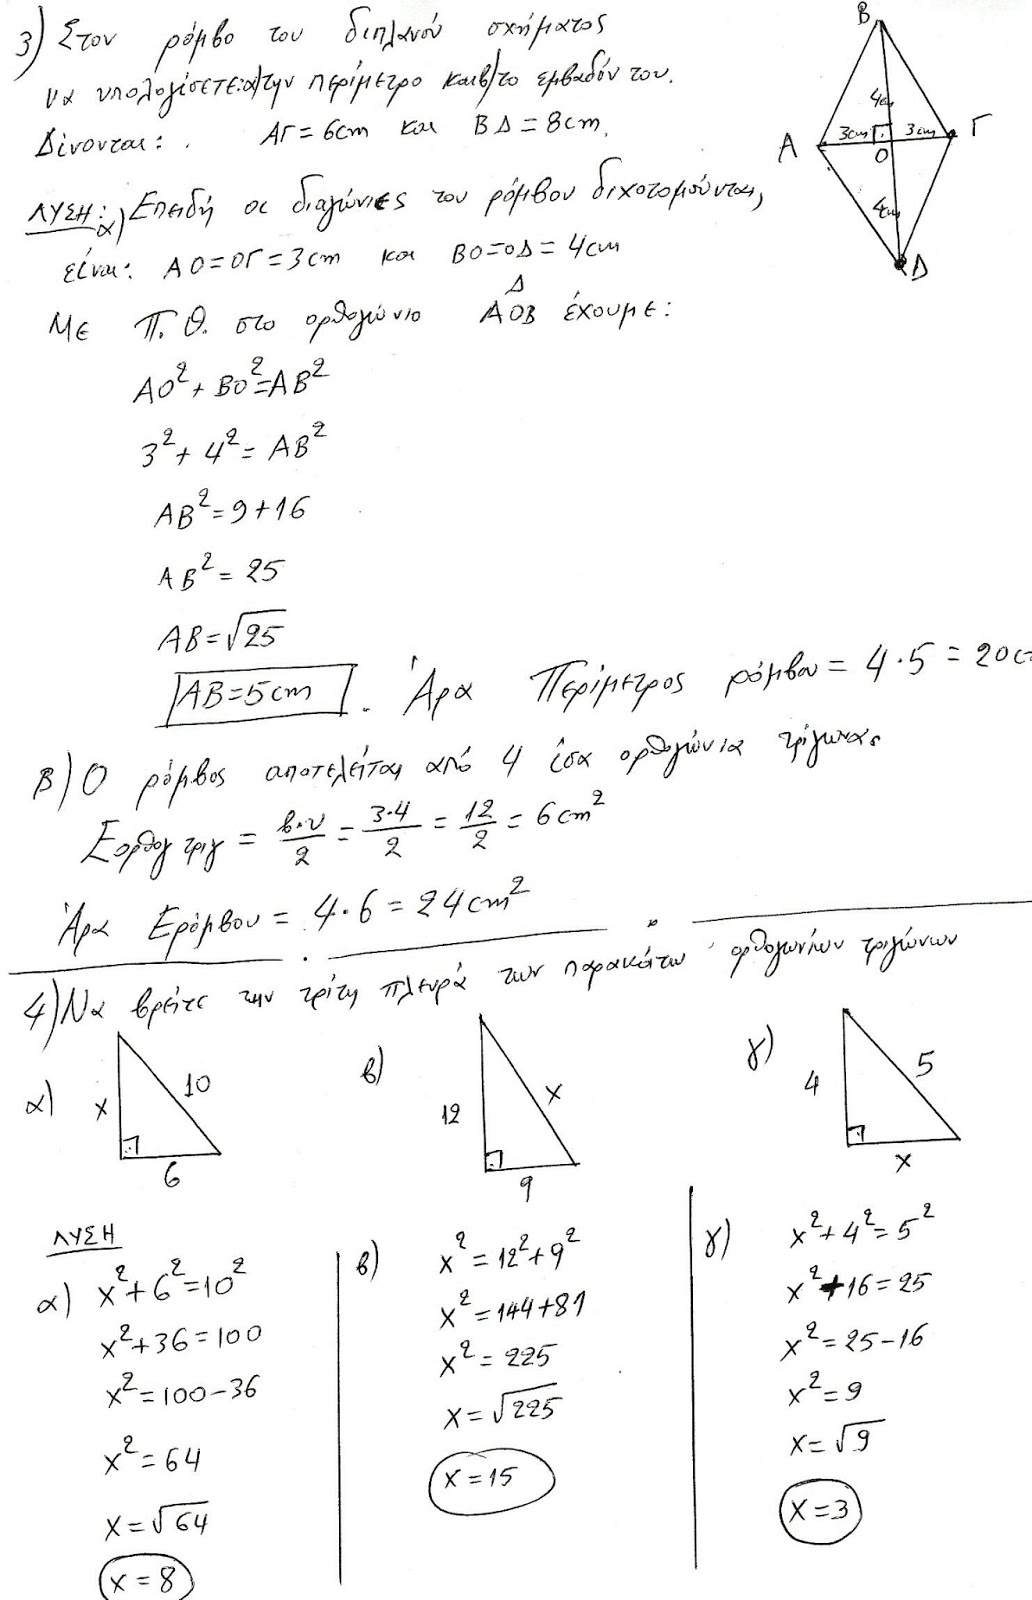 3) Στον ρόμβο του διπλανού σχήματος
να υπολογίσετε: α) την περίμετρο και β) το εμβαδόν του.
Δίνονται: ΑΓ=6cm και ΒΔ=8cm.
Β
4cm
3cm 3cm
Α Γ
Ο
4cm
Δ
ΛΥΣΗ: α) Επειδή οι διαγώνιες του ρόμβου διχοτομούνται,
είναι: ΑΟ=ΟΓ=3cm και ΒΟ=ΟΔ=4cm
Με Π.Θ. στο ορθογώνιο ΑΟΒ έχουμε:
ΑΟ²+ΒΟ²=ΑΒ²
3²+4²=ΑΒ²
ΑΒ²=9+16
ΑΒ²=25
ΑΒ=√25
ΑΒ=5cm. Άρα Περίμετρος ρόμβου=4·5=20c
Β) Ο ρόμβος αποτελείται από 4 ίσα ορθογώνια τρίγωνα.
Εορθογ τριγ = β·υ/2 = 3·4/2 = 12/2 = 6cm²
Άρα Ερόμβου = 4·6=24cm²
4) Να βρείτε την τρίτη πλευρά των παρακάτω ορθογωνίων τριγώνων
α) x 10 6
β) 12 x 9
γ) 4 5 x
ΛΥΣΗ
α) x²+6²=10²
x²+36=100
x²=100-36
x²=64
x=√64
x=8
β) x²=12²+9²
x²=144+81
x²=225
x=√225
x=15
γ) x²+4²=5²
x²+16=25
x²=25-16
x²=9
x=√9
x=3